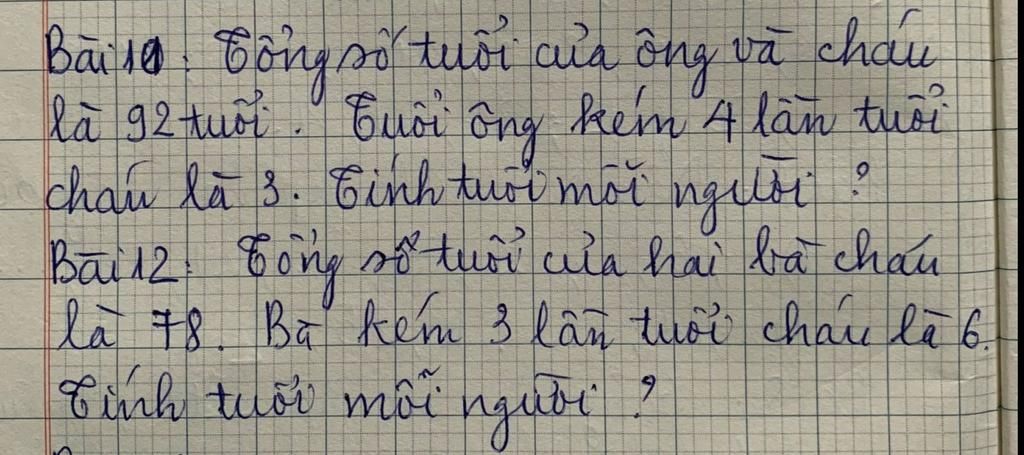 Bài 10: Tổng số tuổi của ông và cháu
là 92 tuổi. Tuổi ông kém 4 lần tuổi
cháu là 3. Tính tuổi mỗi người?
Bài 12: Tổng số tuổi của hai bà cháu
là 78. Bà kém 3 lần tuổi cháu là 6.
Tính tuổi mỗi người?